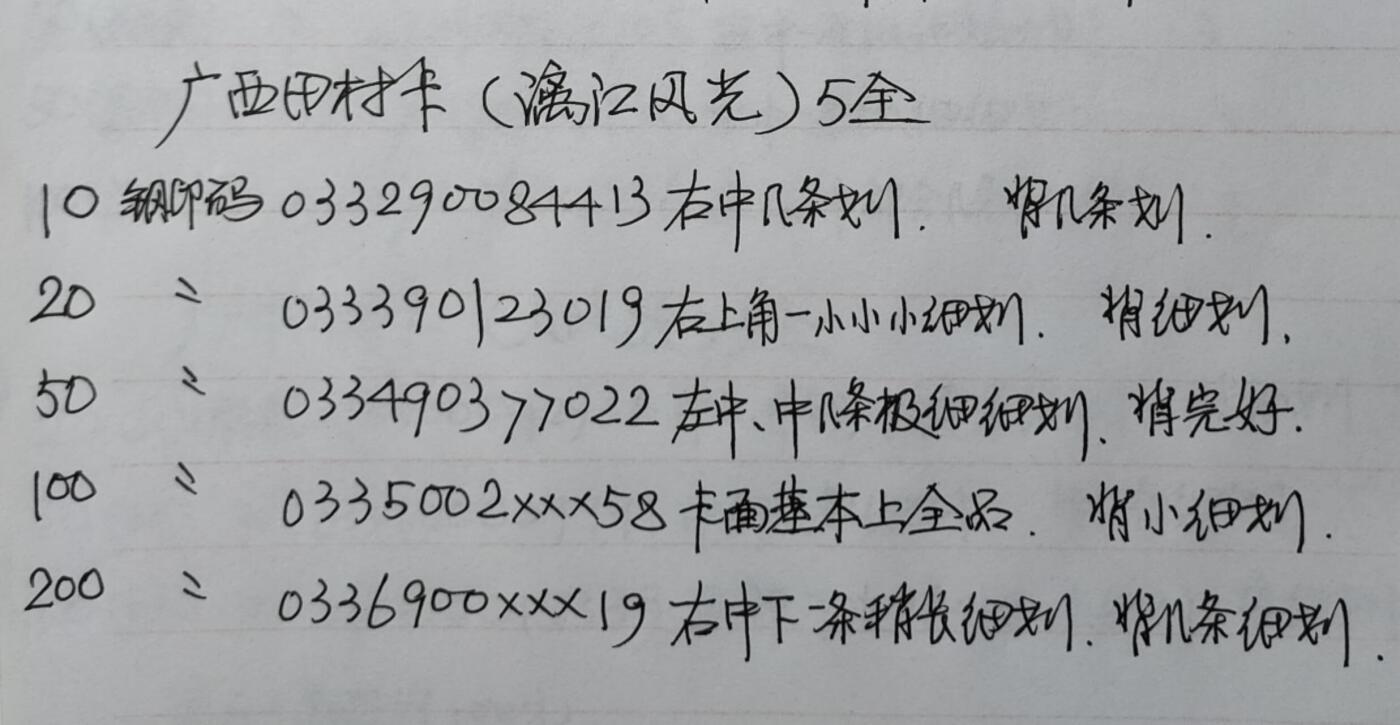 广西田村卡（漓江风光）5全
10 钢印码 033290084413 右中几条划. 背几条划.
20 〃 033390123019 右上角一小小小细划. 背细划.
50 〃 033490377022 左中、中几条极细细划. 背完好.
100 〃 0335002×××58 卡面基本上全品. 背小细划.
200 〃 0336900×××19 右中下一条稍长细划. 背几条细划.